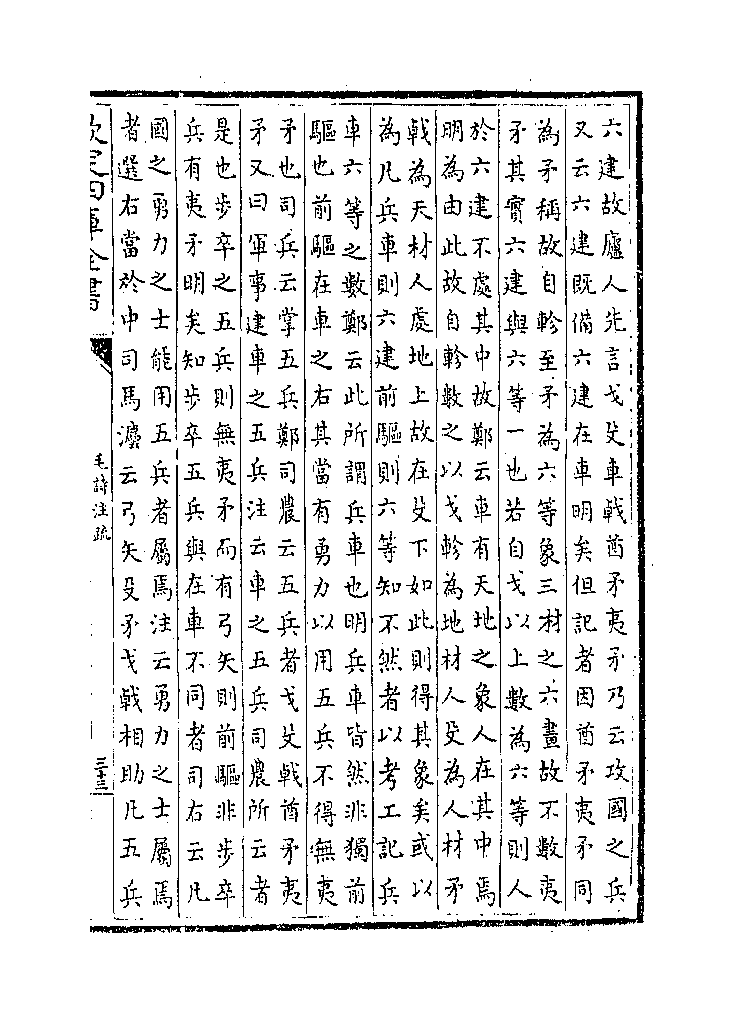 六建故廬人先言戈殳車戟酋矛夷矛乃云攻國之兵
又云六建既備六建在車明矣但記者因酋矛夷矛同
為矛稱故自軫至矛為六等象三材之六畫故不數夷
矛其實六建與六等一也若自戈以上數為六等則人
於六建不處其中故鄭云車有天地之象人在其中焉
明為由此故自軫數之以戈軫為地材人殳為人材矛
戟為天材人處地上故在殳下如此則得其象矣或以
為凡兵車則六建前驅則六等知不然者以考工記兵
車六等之數鄭云此所謂兵車也明兵車皆然非獨前
驅也前驅在車之右其當有勇力以用五兵不得無夷
矛也司兵云掌五兵鄭司農云五兵者戈殳戟酋矛夷
矛又曰軍事建車之五兵注云車之五兵司農所云者
是也步卒之五兵則無夷矛而有弓矢則前驅非步卒
兵有夷矛明矣知步卒五兵與在車不同者司右云凡
國之勇力之士能用五兵者屬焉注云勇力之士屬焉
者選右當於中司馬灋云弓矢殳矛戈戟相助凡五兵
欽定四庫全書
毛詩注疏
三十三